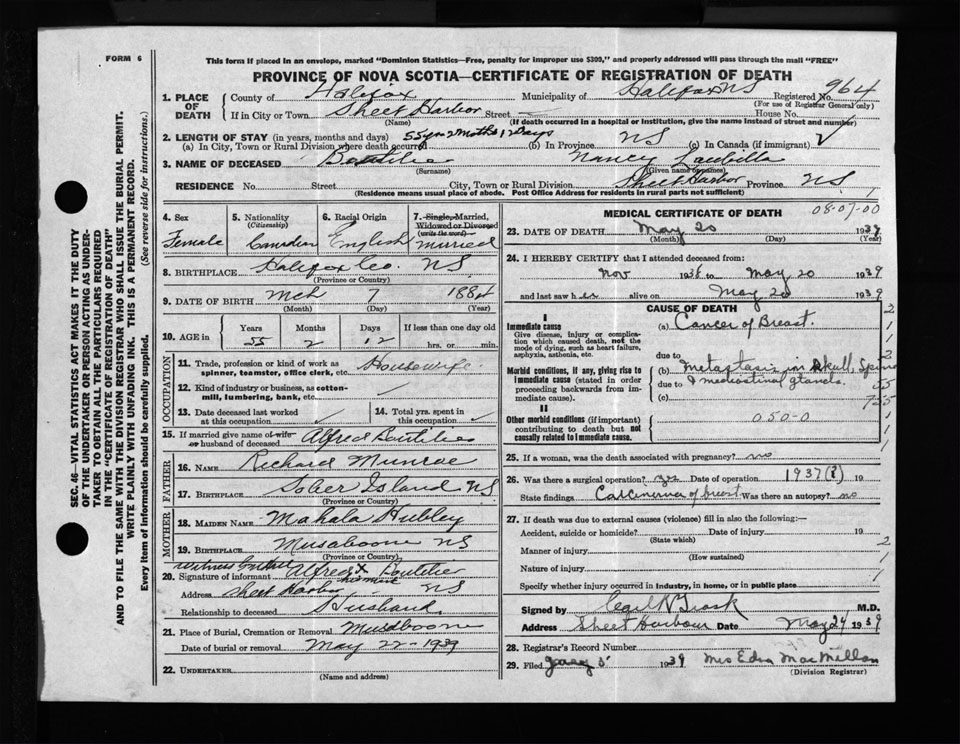 FORM 6
This form if placed in an envelope, marked "Dominion Statistics—Free, penalty for improper use $300," and properly addressed will pass through the mail "FREE"
PROVINCE OF NOVA SCOTIA—CERTIFICATE OF REGISTRATION OF DEATH
SEC. 46—VITAL STATISTICS ACT MAKES IT THE DUTY
OF THE UNDERTAKER OR PERSON ACTING AS UNDER-
TAKER TO OBTAIN ALL THE PARTICULARS REQUIRED
IN THE "CERTIFICATE OF REGISTRATION OF DEATH"
AND TO FILE THE SAME WITH THE DIVISION REGISTRAR WHO SHALL ISSUE THE BURIAL PERMIT.
WRITE PLAINLY WITH UNFADING INK. THIS IS A PERMANENT RECORD.
Every item of Information should be carefully supplied. (See reverse side for instructions.)
1. PLACE OF DEATH
County of Halifax Municipality of Halifax NS Registered No. 964
(For use of Registrar General only)
If in City or Town Sheet Harbor Street House No.
(Name) (If death occurred in a hospital or institution, give the name instead of street and number)
2. LENGTH OF STAY (in years, months and days) 55 yrs 2 moths 12 Days
(a) In City, Town or Rural Division where death occurred (b) In Province NS (c) In Canada (if immigrant) ✓
3. NAME OF DECEASED Boutilier Nancy
(Surname) (Given name or names)
RESIDENCE No. Street City, Town or Rural Division Sheet Harbor Province NS
(Residence means usual place of abode. Post Office Address for residents in rural parts not sufficient)
4. Sex Female
5. Nationality (Citizenship) Canadian
6. Racial Origin English
7. Single, Married, Widowed or Divorced (write the word) Married
8. BIRTHPLACE Halifax Co. NS
(Province or Country)
9. DATE OF BIRTH Mch 7 1884
(Month) (Day) (Year)
10. AGE in Years Months Days If less than one day old
55 2 12 hrs. or min.
OCCUPATION
11. Trade, profession or kind of work as spinner, teamster, office clerk, etc. Housewife
12. Kind of industry or business, as cotton-mill, lumbering, bank, etc. ✓
13. Date deceased last worked at this occupation ✓
14. Total yrs. spent in this occupation ✓
15. If married give name of wife or husband of deceased Alfred Boutilier
FATHER
16. NAME Richard Munroe
17. BIRTHPLACE Sober Island NS
(Province or Country)
MOTHER
18. MAIDEN NAME Mahala Hubley
19. BIRTHPLACE Musaboone NS
(Province or Country)
20. Signature of informant Alfred X Boutilier
his mark
Address Sheet Harbor NS
Relationship to deceased Husband
21. Place of Burial, Cremation or Removal Musdboone
Date of burial or removal May 22-1939
22. UNDERTAKER
(Name and address)
MEDICAL CERTIFICATE OF DEATH 08-07-00
23. DATE OF DEATH May 20 1939
(Month) (Day) (Year)
24. I HEREBY CERTIFY that I attended deceased from:
Nov 1938 to May 20 1939
and last saw her alive on May 20 1939
CAUSE OF DEATH
I
Immediate cause
Give disease, injury or complication which caused death, not the mode of dying, such as heart failure, asphyxia, asthenia, etc.
(a) Cancer of Breast.
due to
Morbid conditions, if any, giving rise to immediate cause (stated in order proceeding backwards from immediate cause).
(b) Metastasis in Skull, Spine
due to & mediastinal glands.
(c)
II
Other morbid conditions (if important) contributing to death but not causally related to immediate cause.
050-0
25. If a woman, was the death associated with pregnancy? no
26. Was there a surgical operation? yes Date of operation 1937(?) 19
State findings Carcinoma of breast Was there an autopsy? no
27. If death was due to external causes (violence) fill in also the following:—
Accident, suicide or homicide? Date of injury 19
(State which)
Manner of injury
(How sustained)
Nature of injury
Specify whether injury occurred in industry, in home, or in public place
Signed by Cecil N Trask M.D.
Address Sheet Harbour Date May 24 1939
28. Registrar's Record Number
29. Filed 1939 Mrs Edna MacMillan
(Division Registrar)